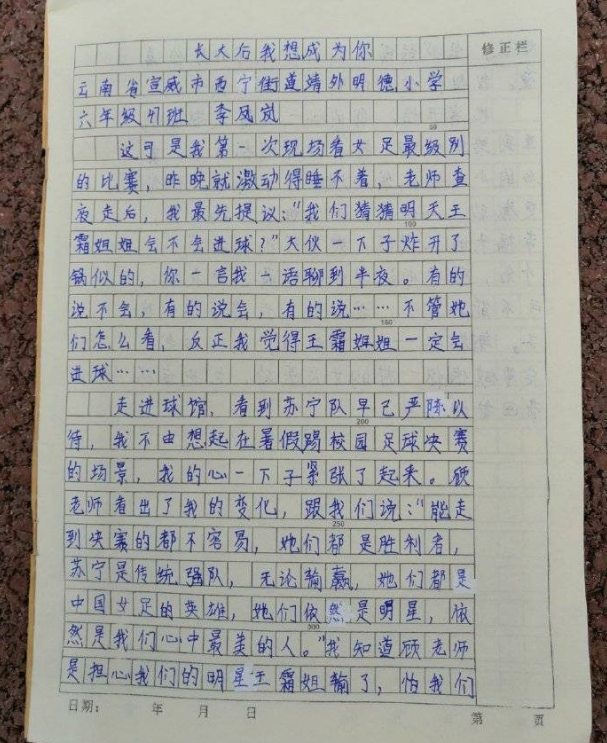 长大后我想成为你
修正栏
云南省宣威市西宁街道靖外明德小学
六年级11班 李凤岚
这可是我第一次现场看女足最级别
的比赛，昨晚就激动得睡不着，老师查
夜走后，我最先提议："我们猜猜明天王
100
霜姐姐会不会进球？"大伙一下子炸开了
锅似的，你一言我一语聊到半夜。有的
说不会，有的说会，有的说……不管她
们怎么看，反正我觉得王霜姐姐一定会
进球……
走进球馆，看到苏宁队早已严陈以
200
待，我不由想起在暑假踢校园足球决赛
的场景，我的心一下子紧张了起来。顾
老师看出了我的变化，跟我们说："能走
250
到决赛的都不容易，她们都是胜利者，
苏宁是传统强队，无论输赢，她们都是
中国女足的英雄，她们依然是明星，依
300
然是我们心中最美的人。"我知道顾老师
是担心我们的明星王霜姐输了，怕我们
日期： 年 月 日 第 页